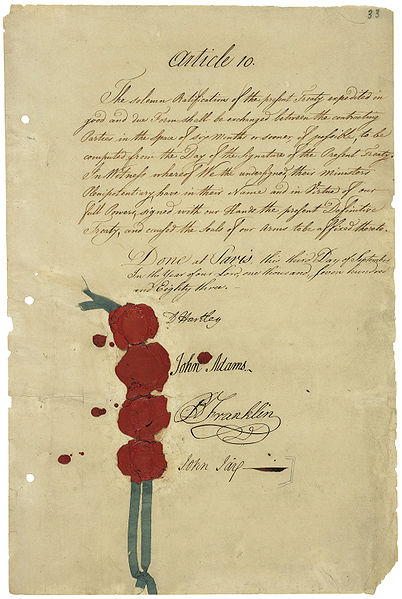 33
Article 10.
The solemn Ratifications of the present Treaty expedited in
good and due Form shall be exchanged between the contracting
Parties in the Space of six Months or sooner if possible, to be
computed from the Day of the Signature of the Present Treaty.
In Witness whereof We the undersigned, their Ministers
Plenipotentiary, have in their Name and in Virtue of our
full Powers, signed with our Hands the present Definitive
Treaty, and caused the Seals of our Arms to be affixed thereto.
Done at Paris this third Day of September
In the Year of our Lord one thousand, seven hundred
and Eighty three. -
D Hartley
John Adams
B Franklin
John Jay